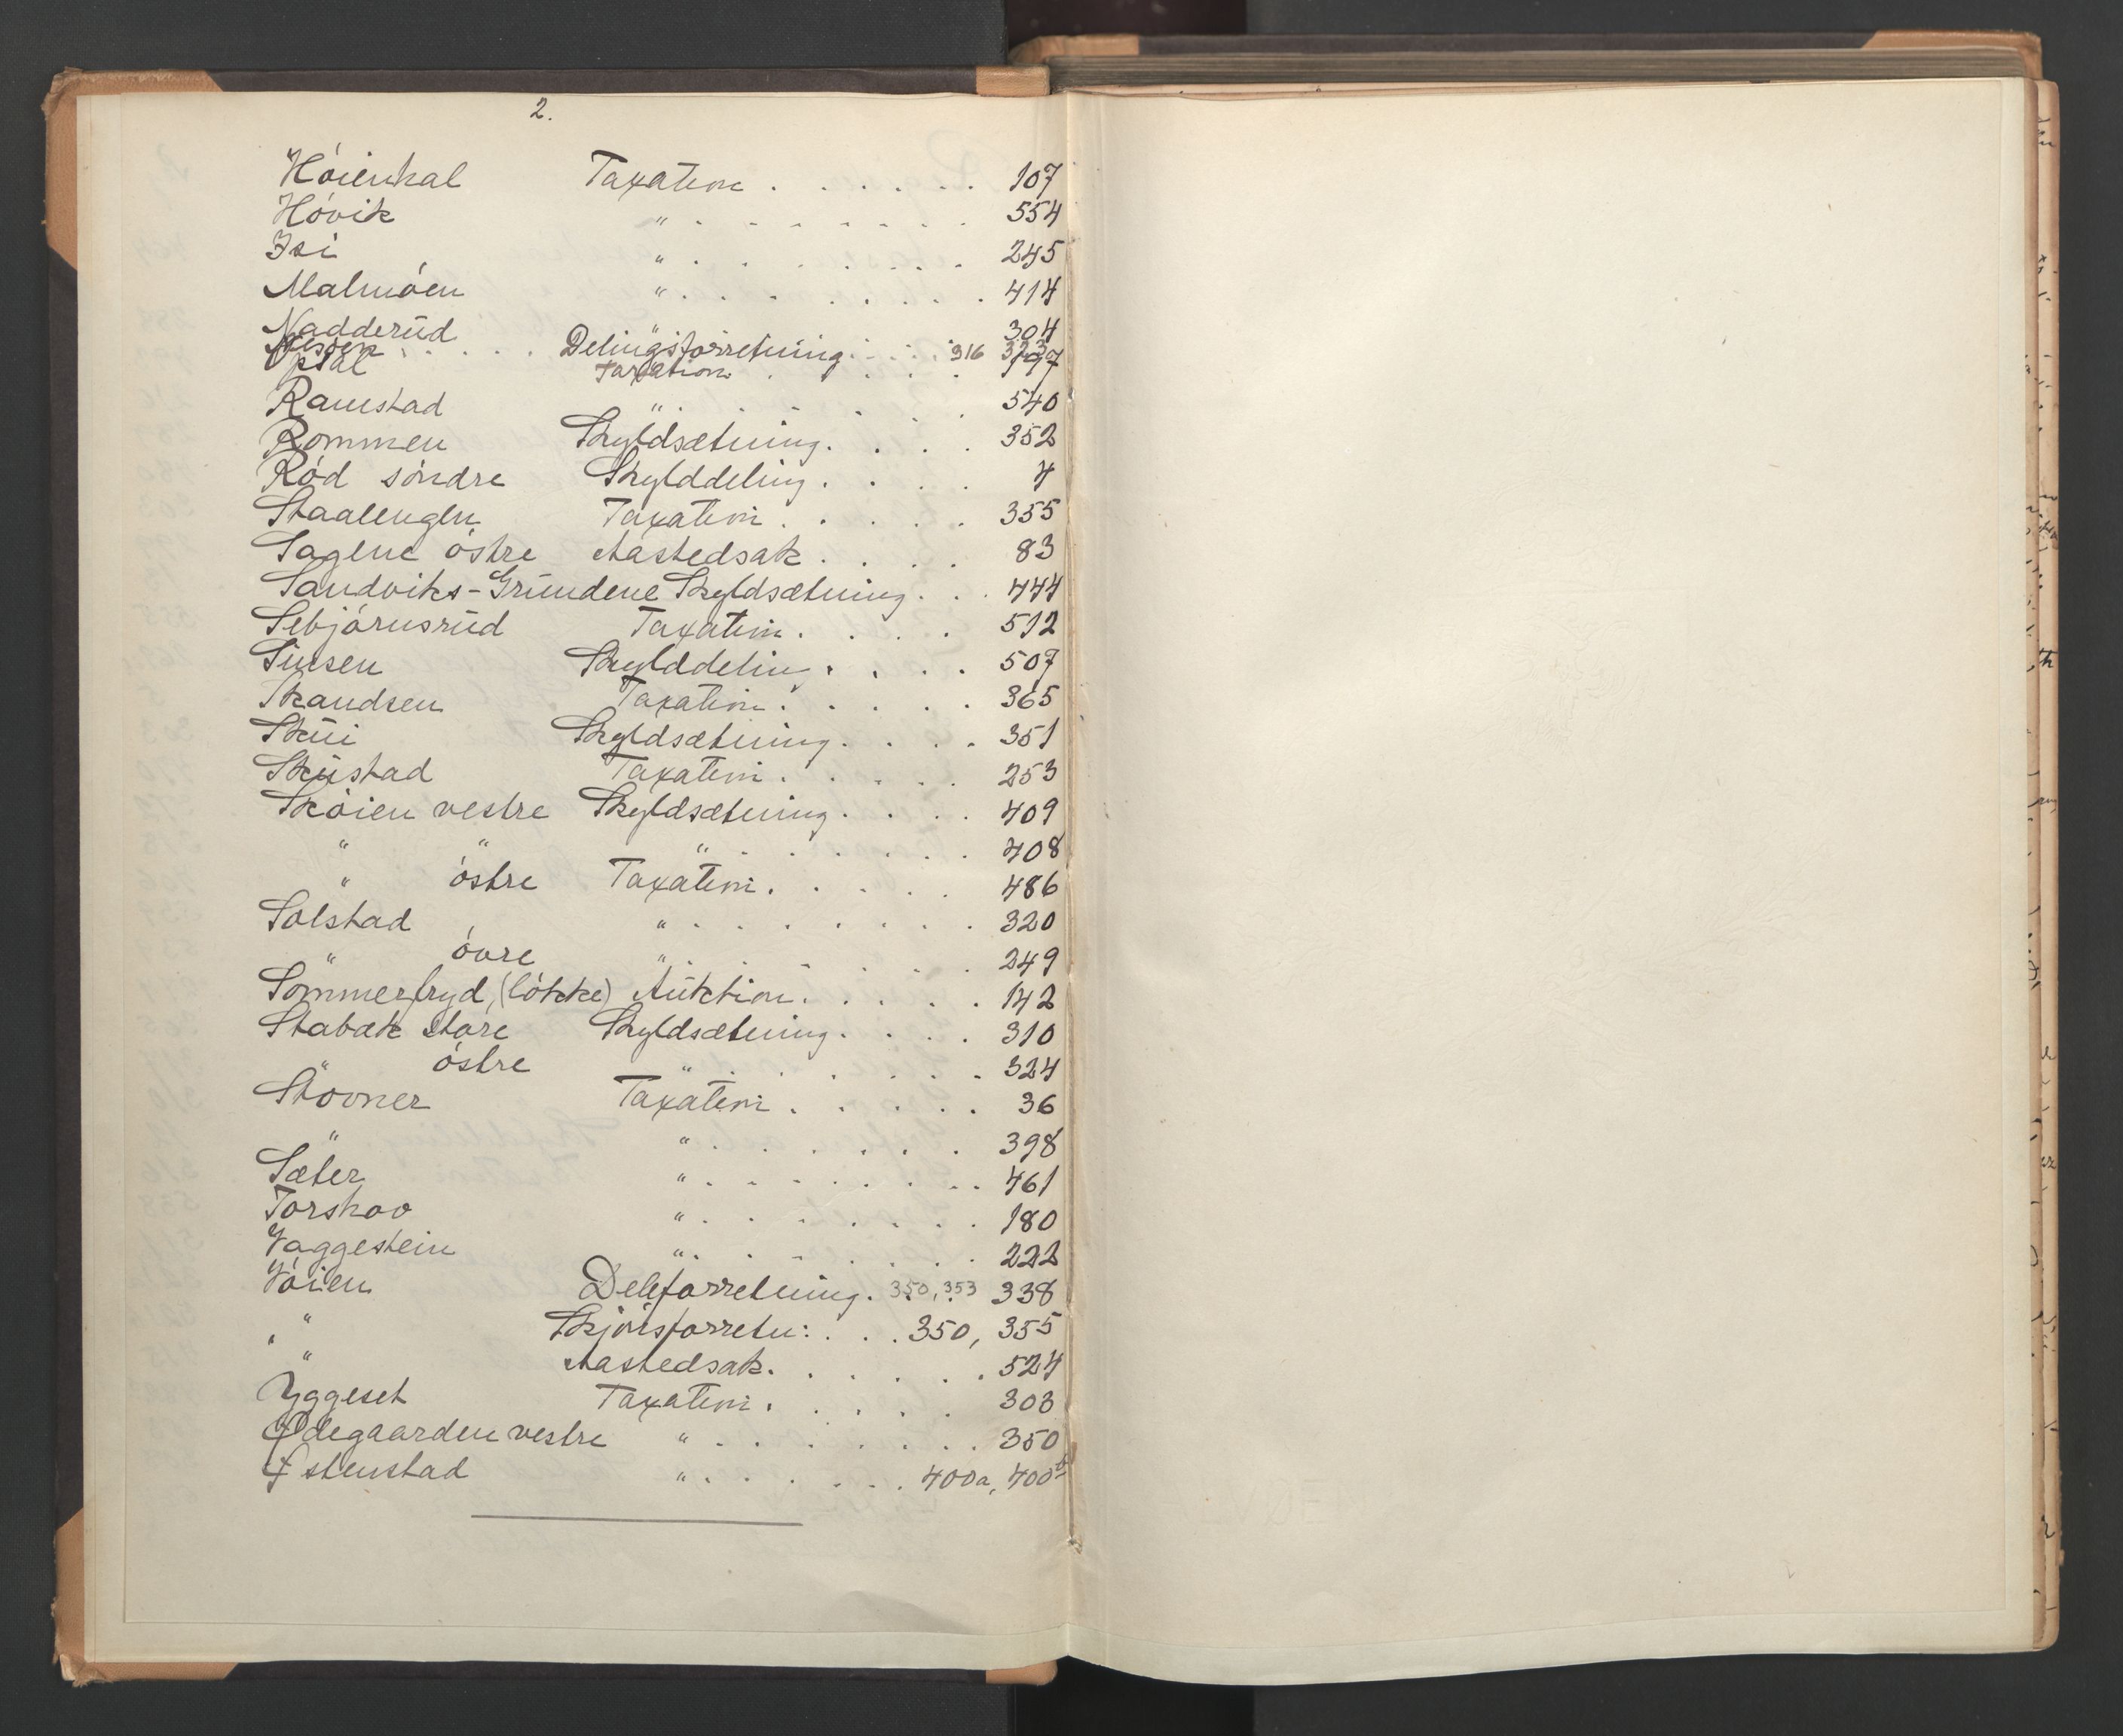 2.
Høienhal Taxation . . . . . . 107
Høvik " . . . . . . . . 554
Isi " . . . . . . . . 245
Malmøen " . . . . . . . . . 414
Nadderud " 304
Nesøen . . . . . Delingsforretning . . . . 316 323
Opsal Taxation . . . . . 197
Ramstad " . . . . . . . 540
Rommen Skyldsætning . . . . 352
Rød søndre Skylddeling . . . . 4
Staalenglen Taxation . . . . . 355
Sagene østre Aastedsak . . . . 83
Sandviks-Grundene Skyldsætning . . . 444
Sebjørnsrud Taxation . . . . 512
Sinsen Skylddeling . . . . 507
Skandsen Taxation . . . . . 365
Skui Skyldsætning . . . . 351
Skustad Taxation . . . . . 253
Skøien vestre Skyldsætning . . . . 409
" " " . . . . . . . 408
" østre Taxation . . . . . 486
Solstad " . . . . . . . . 320
" øvre " . . . . . . . . 249
Sommerfryd, (løkke) Auktion . . . . . 142
Stabæk store Skyldsætning . . . . 310
" østre " . . . . . . . 324
Stovner Taxation . . . . . 36
" " . . . . . . . 398
Sæter " . . . . . . . . . 461
Torshov " . . . . . . . . 180
Vaggestein " . . . . . . . 222
Vøien Deleforretning . 350, 353 338
" " Skjønsforretn: . . . 350, 355
" Aastedsak . . . . . . . 524
Yggeset Taxation . . . . . 303
Ødegaarden vestre " . . . . . . . . 350
Østenstad " . . . . . . 400a, 400b